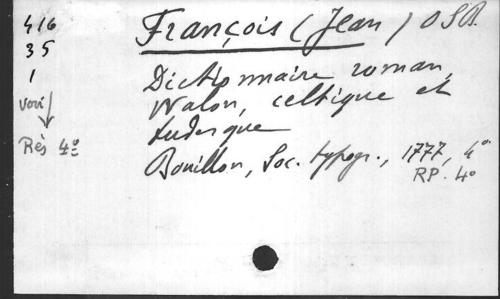 416
35
1
voir
Rés 4º
François (Jean) OSB.
Dictionnaire roman,
Walon, celtique et
tudesque
Bouillon, Soc. typogr., 1777, 4º
RP. 4º